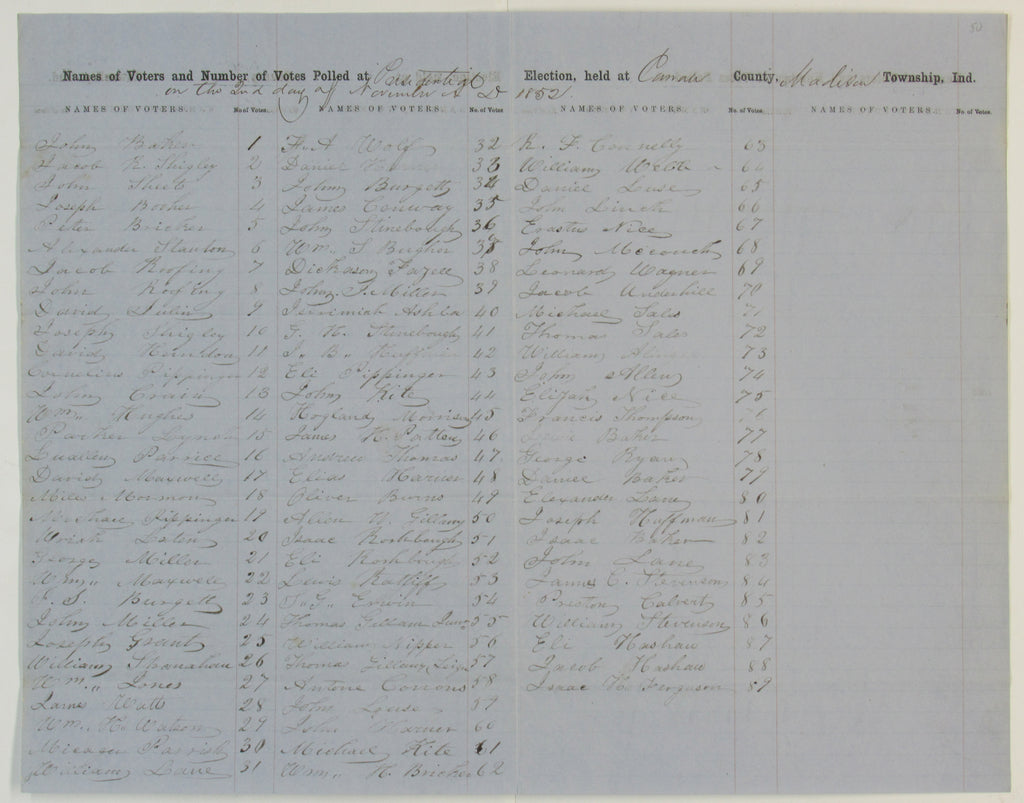 Names of Voters and Number of Votes Polled at Presidential Election, held at County, Madison Township, Ind.
on the 2nd day of November A D 1852.
NAMES OF VOTERS. No. of Votes. NAMES OF VOTERS. No. of Votes. NAMES OF VOTERS. No. of Votes. NAMES OF VOTERS. No. of Votes.
John Baker 1
Jacob K. Shigley 2
John Sheets 3
Joseph Booher 4
Peter Bricker 5
Alexander Stanton 6
Jacob Roofing 7
John Roofing 8
David Julin 9
Joseph Shigley 10
David Herndon 11
Cornelius Pippinger 12
John Crain 13
Wm. Hughes 14
Parker Lynch 15
Parrice 16
David Maxwell 17
Miles Mormon 18
Michael Pippinger 19
Uriah 20
George Miller 21
Wm. Maxwell 22
Burgett 23
John Miller 24
Joseph Grant 25
William Shanahan 26
Wm. Jones 27
James Watt 28
Wm. H. Watson 29
Micager Parrish 30
William Lane 31
H. A Wolf 32
Daniel 33
John Burgett 34
James Conway 35
John Stinebough 36
Wm. S Bugher 37
Dickason Fazell 38
John J. Miller 39
Jerrimiah Ashba 40
G. H. Stinebough 41
J. B. Huffman 42
Eli Pippinger 43
John Kite 44
Hogland Morrison 45
James H. Patten 46
Andrew Thomas 47
Elias Harner 48
Oliver Burns 49
Allen W. Gillam 50
Isaac Rorhbough 51
Eli Rorhbough 52
Lewis Ratliff 53
Erwin 54
Thomas Gillam Jun 55
William Nipper 56
Thomas Gillam 57
Antone Conons 58
John Louse 59
John Warner 60
Michael Kite 61
Wm. H. Bricker 62
R. F. Connelly 63
William Webb 64
Daniel Luse 65
John Linch 66
Erastus Nice 67
John Mccouch 68
Leonard Wagner 69
Jacob Underhill 70
Michael Sales 71
Thomas Sales 72
William 73
John Allen 74
Elijah Nice 75
Francis Thompson 76
Baker 77
George Ryan 78
Daniel Baker 79
Elexander Lane 80
Joseph Hoffman 81
Isaac Baker 82
John Lane 83
James C. Stevenson 84
Preston Calvert 85
William Stevenson 86
Eli Hashaw 87
Jacob Hashaw 88
Isaac H. Ferguson 89